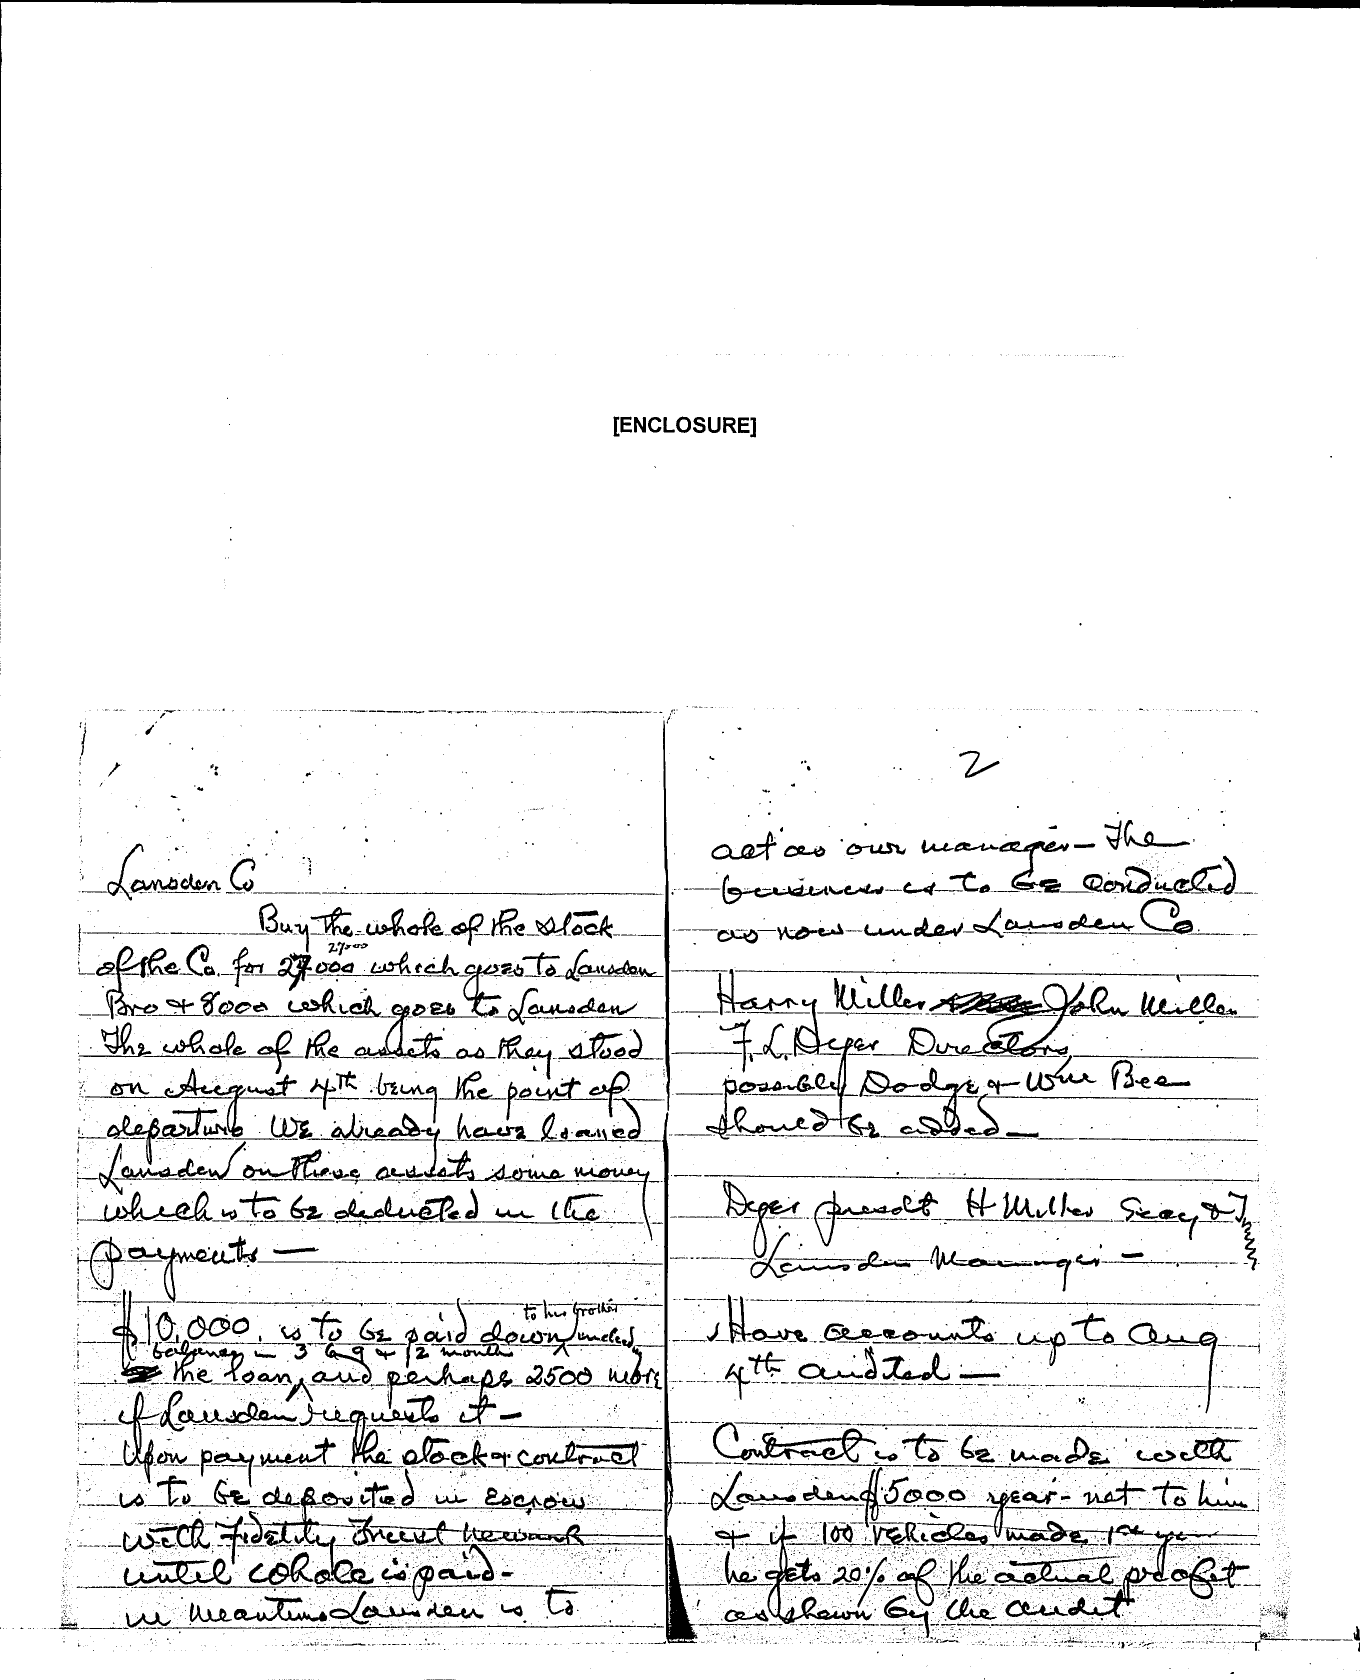 [ENCLOSURE]
Lansden Co
Buy the whole of the stock
27000
of the Co. for 27000 which goes to Lansden
Bro + 8000 which goes to Lansden
The whole of the assets as they stood
on August 4th being the point of
departure We already have loaned
Lansden on these assets some money
which is to be deducted in the
payments —
to his brother
$10,000. is to be paid down
balance in 3 6 9 + 12 months
the loan, and perhaps 2500 more
if Lansden requests it —
Upon payment the stock + contract
is to be deposited in Escrow
with Fidelity Trust Newark
until whole is paid-
in meantime Lansden is to
2
act as our manager — The
business is to be conducted
as now under Lansden Co
Harry Miller John Miller
F. L. Dyer Directors
possibly Dodge + Wm Bee
should be added —
Dyer presdt H Miller Secy + T
Lansden Manager —
Have accounts up to Aug
4th audited —
Contract is to be made with
Lansden $5000 year- net to him
+ if 100 vehicles made 1st year
he gets 20% of the actual profit
as shown by the audit